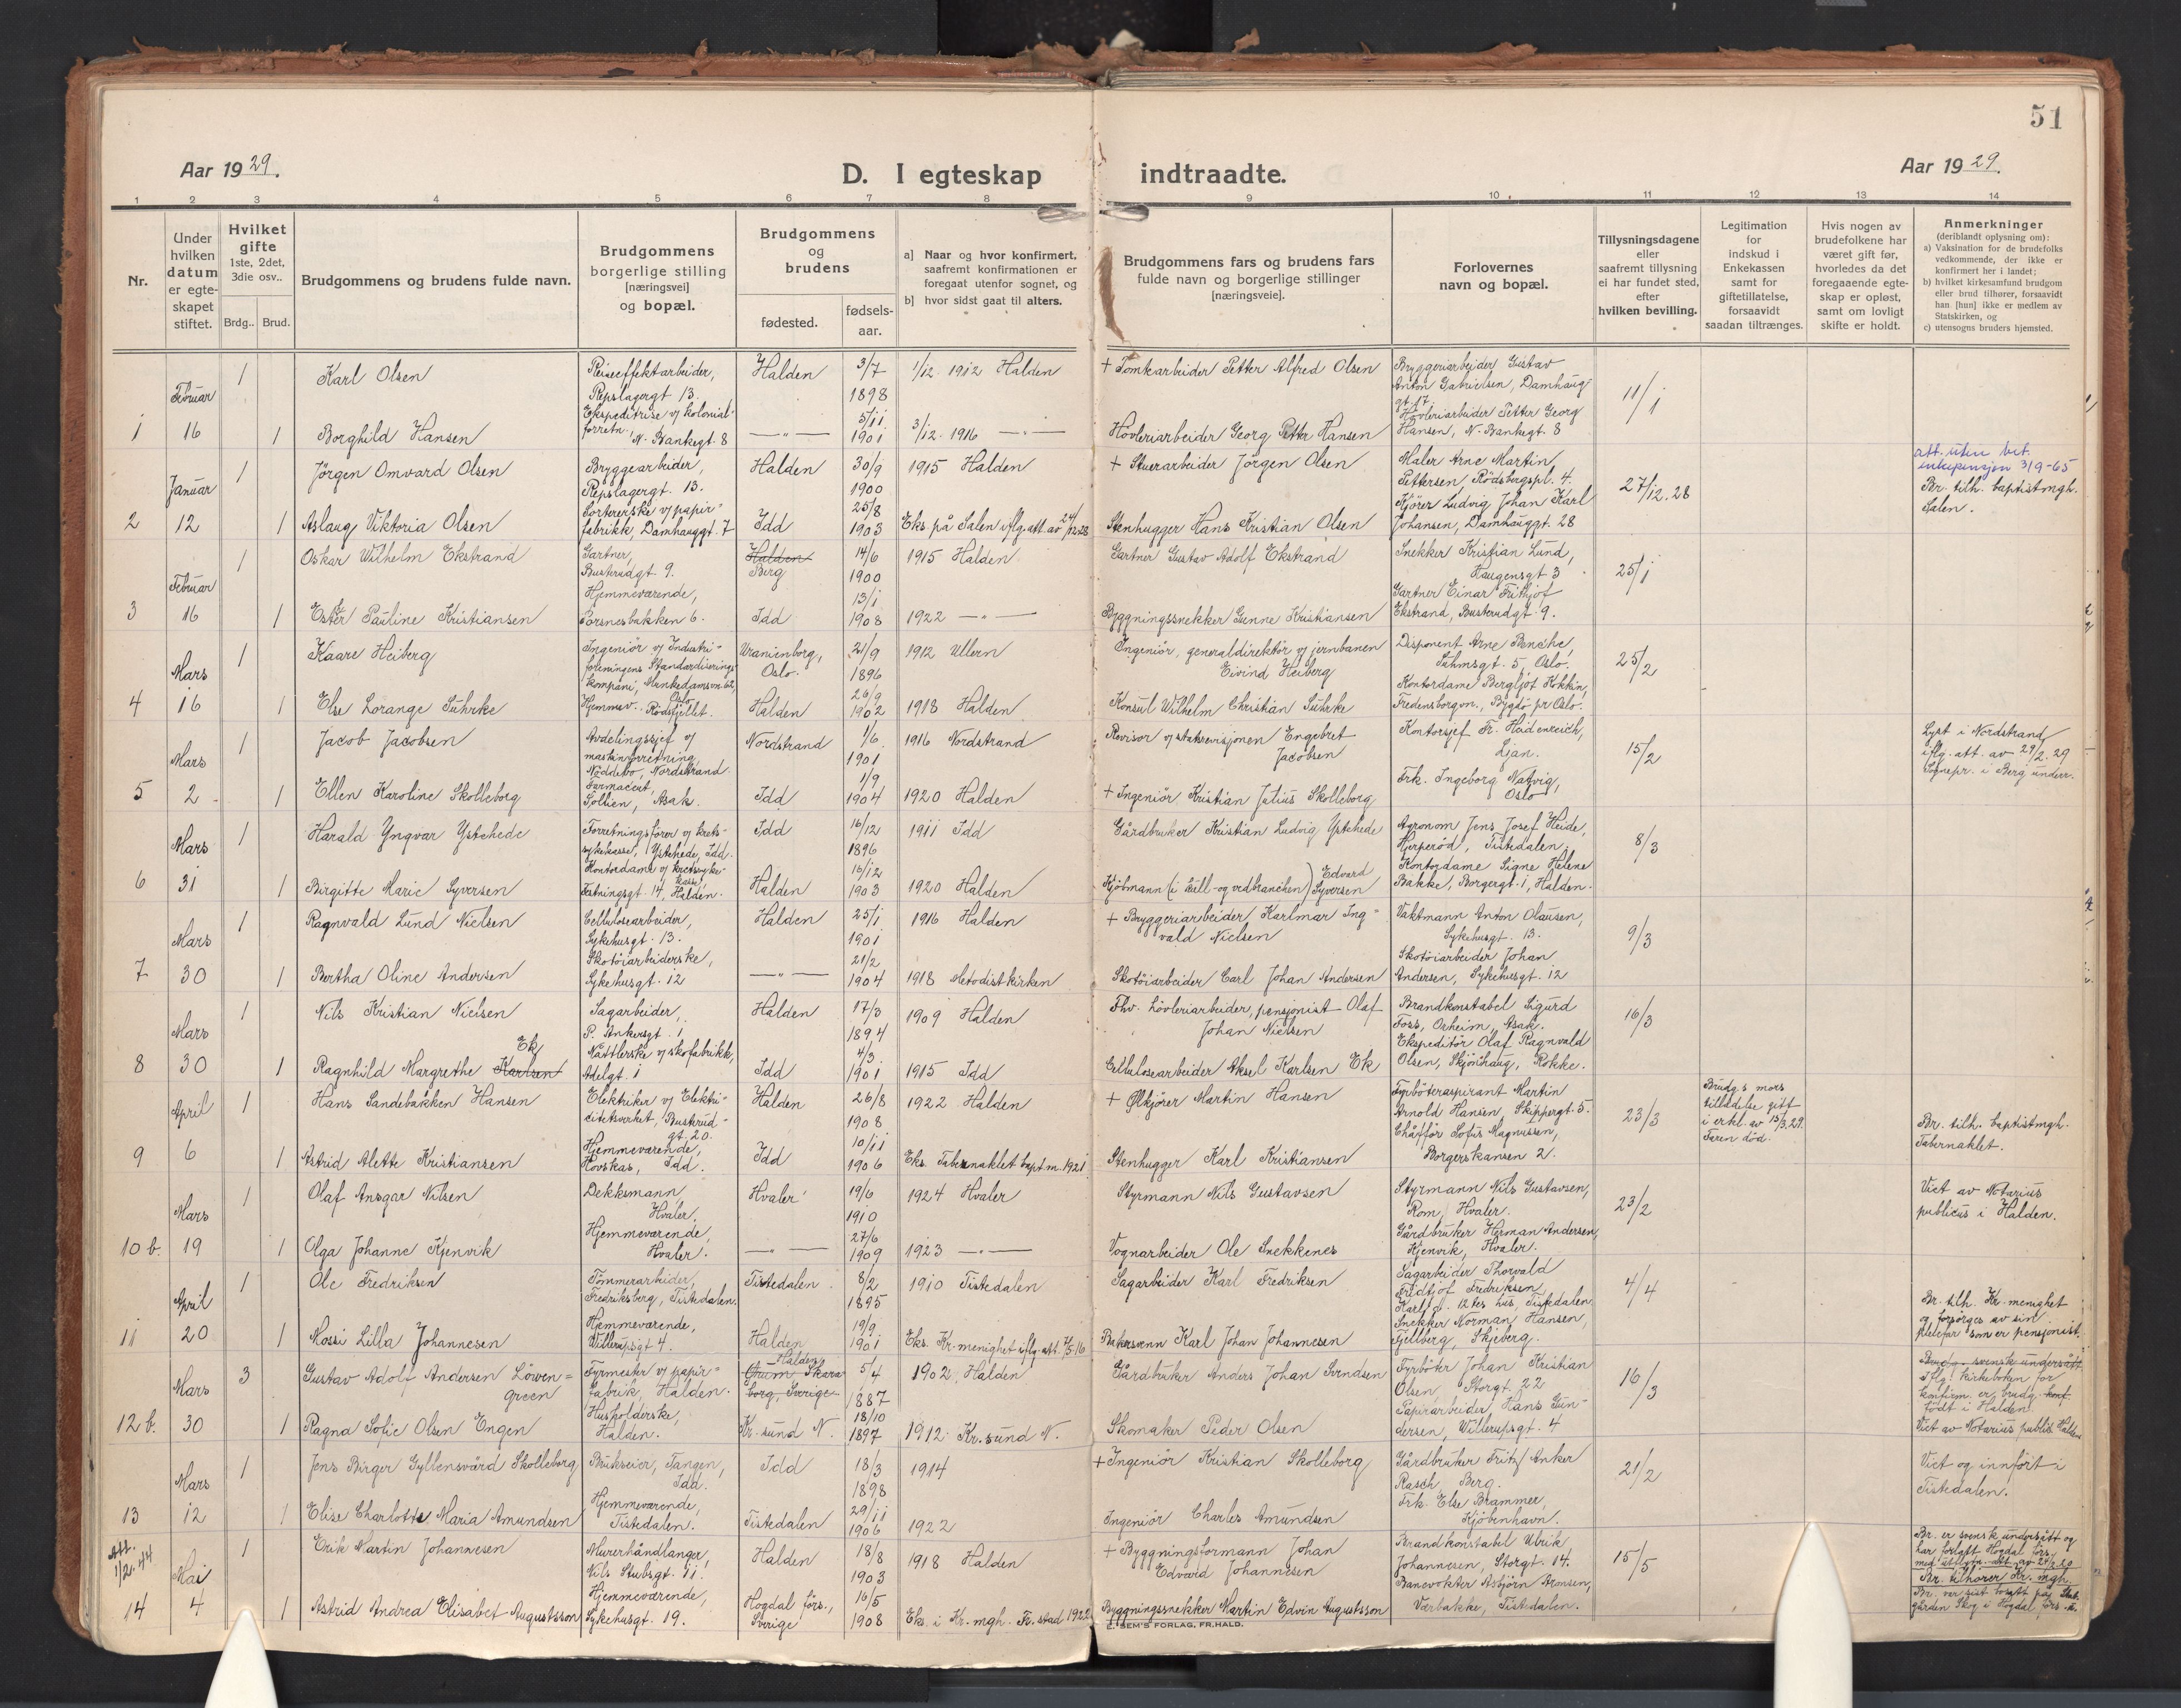 51
Aar 1929.
D. I egteskap indtraadte.
Aar 1929.
1 2 3 4 5 6 7 8 9 10 11 12 13 14
Nr.
Under hvilken datum er egteskapet stiftet.
Hvilket gifte
1ste, 2det, 3die osv..
Brdg.. Brud.
Brudgommens og brudens fulde navn.
Brudgommens borgerlige stilling [næringsvei] og bopæl.
Brudgommens og brudens
fødested.
fødselsaar.
a) Naar og hvor konfirmert, saafremt konfirmationen er foregaat utenfor sognet, og
b) hvor sidst gaat til alters.
Brudgommens fars og brudens fars fulde navn og borgerlige stillinger [næringsveie].
Forlovernes navn og bopæl.
Tillysningsdagene eller saafremt tillysning ei har fundet sted, efter hvilken bevilling.
Legitimation for indskud i Enkekassen samt for giftetilladelse, forsaavidt saadan tiltrænges.
Hvis nogen av brudefolkene har været gift før, hvorledes da det foregaaende egteskap er opløst, samt om lovligt skifte er holdt.
Anmerkninger
(deriblandt oplysning om):
a) Vaksination for de brudefolks vedkommende, der ikke er konfirmert her i landet;
b) hvilket kirkesamfund brudgom eller brud tilhører, forsaavidt han [hun] ikke er medlem av Statskirken, og
c) utensogns bruders hjemsted.
Februar 1 Karl Olsen Reiseeffektarbeider, Repslagergt 13. Halden 3/7 1898 1/12 1912 Halden + Tomtearbeider Petter Alfred Olsen Bryggeriarbeider Gustav Anton Gabrielsen, Damhauggt. 17. 11/1
1 16 1 Borghild Hansen Ekspeditrise v/ kolonialforretn., N. Bankegt. 8 —"— 5/11 1901 3/12 1916 —"— Høvleriarbeider Georg Petter Hansen Høvleriarbeider Petter Georg Hansen, N. Bankegt. 8
Januar 1 Jörgen Omvard Olsen Bryggearbeider, Repslagergt. 13. Halden 30/9 1900 1915 Halden + Stuerarbeider Jörgen Olsen Maler Arne Martin Pettersen, Rödsbergspl. 4. 27/12.28 att. uten bet. enkepensjon 3/9-65
2 12 1 Aslaug Viktoria Olsen Sortererske v/ papirfabrikk, Damhauggt. 7 Idd 25/8 1903 Eks. på Salen iflg. att. av 24/12.28 Stenhugger Hans Kristian Olsen Kjörer Ludvig Johan Karl Johansen, Damhauggt. 28 Br. tilh. baptistmgh. Salen.
Februar 1 Oskar Wilhelm Ekstrand Gartner, Busterudgt. 9. Halden Berg 14/6 1900 1915 Halden Gartner Gustav Adolf Ekstrand Snekker Kristian Lund, Haugensgt 3 25/1
3 16 1 Ester Pauline Kristiansen Hjemmeværende, Porsnesbakken 6. Idd 13/1 1908 1922 —"— Byggningssnekker Gunne Kristiansen Gartner Einar Frithjof Ekstrand, Busterudgt. 9.
Mars 1 Kaare Heiberg Ingeniör v/ Industriforeningens Standardiseringskompani, Munkedamsvn. 62, Oslo. Uranienborg, Oslo. 21/9 1896 1912 Ullern Ingeniör, generaldirektör v/ jernbanen Eivind Heiberg Disponent Arne Benche, Suhmsgt. 5, Oslo. 25/2
4 16 1 Else Lorange Suhrke Hjemmev. Rödsfjellet. Halden 26/9 1902 1918 Halden Konsul Wilhelm Christian Suhrke Kontordame Bergljot Kokkin, Fredensborgvn., Bygdö pr Oslo.
Mars 1 Jacob Jacobsen Avdelingssjef v/ maskinforretning, Nöddebo, Nordstrand. Nordstrand 1/6 1901 1916 Nordstrand Revisor v/ statsrevisjonen Engebret Jacobsen Kontorsjef Fr. Heidenreich, Ljan. 15/2 Lyst i Nordstrand iflg. att. av 27/2.29
5 2 1 Ellen Karoline Skolleborg Farmaceut, Sollien, Asak. Idd 1/9 1904 1920 Halden + Ingeniör Kristian Julius Skolleborg Frk. Ingeborg Natvig, Oslo Sognepr. i Berg underr.
Mars 1 Harald Yngvar Ystehede Forretningsförer v/ kretssykekasse, Ystehede, Idd. Idd 16/12 1896 1911 Idd Gårdbruker Kristian Ludvig Ystehede Agronom Jens Josef Heide, Hjerperöd, Tistedalen. 8/3
6 31 1 Birgitte Marie Syversen Kontordame v/ kretssykekasse, Festningsgt. 14, Halden. Halden 16/12 1903 1920 Halden Kjöbmann (i kull- og vedbranchen) Edvard Syversen Kontordame Signe Helene Bakke, Borgergt. 1, Halden.
Mars 1 Ragnvald Lund Nielsen Cellulosearbeider, Sykehusgt. 13. Halden 25/1 1901 1916 Halden + Bryggeriarbeider Karlmar Ingvald Nielsen Vaktmann Anton Olausen, Sykehusgt. 13. 9/3
7 30 1 Bertha Oline Andersen Skotöiarbeiderske, Sykehusgt. 12 —"— 21/2 1904 1918 Metodistkirken Skotöiarbeider Carl Johan Andersen Skotöiarbeider Johan Andersen, Sykehusgt. 12
Mars 1 Nils Kristian Nielsen Sagarbeider, P. Ankersgt. 1 Halden 17/3 1894 1909 Halden Fhv. høvleriarbeider, pensjonist Olaf Johan Nielsen Brandkonstabel Sigurd Foss, Orheim, Asak. 16/3
8 30 1 Ragnhild Margrethe Karlsen Ek Nåtlerske v/ skofabrikk, Adelgt. 1 Idd 4/3 1901 1915 Idd Cellulosearbeider Aksel Karlsen Ek Ekspeditör Olaf Ragnvald Olsen, Skjönhaug, Rokke.
April 1 Hans Sandebakken Hansen Elektriker v/ Elektricitetsverket, Busterudgt. 20. Halden 26/8 1908 1922 Halden + Ølkjörer Martin Hansen Fyrböteraspirant Martin Arnold Hansen, Skippergt. 5. 23/3 Brudg.s mors tilladelse gitt i erkl. av 15/3.29. Faren död.
9 6 1 Astrid Alette Kristiansen Hjemmeværende, Hovskas, Idd. Idd 10/11 1906 Eks. Tabernaklet bapt.m. 1921 Stenhugger Karl Kristiansen Chaufför Sofus Magnussen, Borgerskansen 2. Br. tilh. baptistmgh. Tabernaklet.
Mars 1 Olaf Ansgar Nilsen Dekksmann, Hvaler. Hvaler 19/6 1910 1924 Hvaler Styrmann Nils Gustavsen Styrmann Nils Gustavsen, Rom, Hvaler. 23/2 Viet av Notarius publicus i Halden.
10 b. 19 1 Olga Johanne Kjenvik Hjemmeværende, Hvaler. —"— 27/6 1909 1923 —"— Vognarbeider Ole Snekkenes Gårdbruker Herman Andersen, Kjenvik, Hvaler.
April 1 Ole Fredriksen Tömmerarbeider, Fredriksberg, Tistedalen. Tistedalen 8/2 1895 1910 Tistedalen Sagarbeider Karl Fredriksen Sagarbeider Thorvald Fridtjof Fredriksen, 12 fes hus, Tistedalen 4/4
11 20 1 Mossi Lilla Johannesen Hjemmeværende, Willerupsgt 4. Halden 19/9 1901 Eks. Kr. menighet iflg. att. 7/5 16 Bakersvenn Karl Johan Johannesen Snekker Norman Hansen, Fjellberg, Skjeberg. Br. tilh. Kr. menighet og forsörges av sin pleiefar som er pensjonist.
Mars 3 Gustav Adolf Andersen Löwengreen Fyrmester v/ papirfabrik, Halden. Halden Skaraborg, Sverige 5/4 1887 1902 Halden Gårdbruker Anders Johan Svendsen Fyrböter Johan Kristian Olsen, Storgt. 22 16/3 Brudg. svensk undersått. Iflg. kirkeboken for konfirm. er brudg. konf. födt i Halden.
12 b. 30 1 Ragna Sofie Olsen Engen Husholderske, Halden. Kr.sund N. 18/10 1897 1912 Kr.sund N. Skomaker Peder Olsen Papirarbeider Hans Gundersen, Willerupsgt. 4 Viet av Notarius public. Halden
Mars 1 Jens Birger Gyllensvärd Skolleborg Brukseier, Tangen, Idd. Idd 18/3 1898 1914 + Ingeniör Kristian Skolleborg Gårdbruker Fritz Anker Rasch Berg. 21/2 Viet og innfört i Tistedalen.
13 12 1 Elise Charlotte Maria Amundsen Hjemmeværende, Tistedalen. Tistedalen 29/11 1906 1922 Ingeniör Charles Amundsen Frk. Else Brammer, Kjöbenhavn.
Att. 1/2.44 Mai 1 Erik Martin Johannesen Murerhåndlanger, Nils Stubsgt. 11. Halden 18/8 1903 1918 Halden + Byggningsformann Johan Edvard Johannesen Brandkonstabel Ulrik Johannesen, Storgt. 14. 15/5 Br. er svensk undersått og har forlatt Hogdal förs. med utflytn. att. av 24/2.29
14 4 1 Astrid Andrea Elisabet Augustsson Hjemmeværende, Sykehusgt. 19. Hogdal förs., Sverige 16/5 1908 Eks. i Kr. mgh. Fr.stad 1922 Byggningssnekker Martin Edvin Augustsson Banevokter Asbjörn Aronsen, Værbakke, Tistedalen. Br. tilhörer Kr. mgh. Br. var sist bosatt på gården Skog i Hogdal förs.
E. SEM'S FORLAG, FR.HALD.